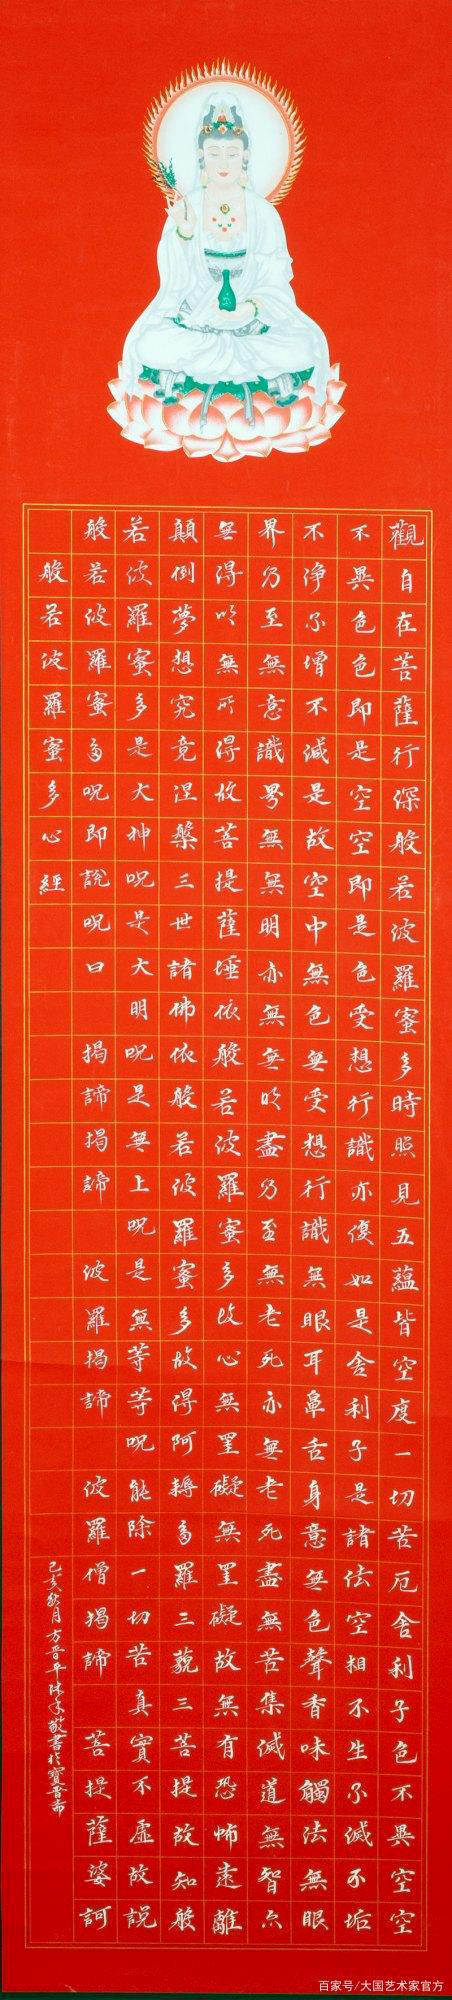 觀自在菩薩行深般若波羅蜜多時照見五蘊皆空度一切苦厄舍利子色不異空空
不異色色即是空空即是色受想行識亦復如是舍利子是諸法空相不生不滅不垢
不淨不增不減是故空中無色無受想行識無眼耳鼻舌身意無色聲香味觸法無眼
界乃至無意識界無無明亦無無明盡乃至無老死亦無老死盡無苦集滅道無智亦
無得以無所得故菩提薩埵依般若波羅蜜多故心無罣礙無罣礙故無有恐怖遠離
顛倒夢想究竟涅槃三世諸佛依般若波羅蜜多故得阿耨多羅三藐三菩提故知般
若波羅蜜多是大神呪是大明呪是無上呪是無等等呪能除一切苦真實不虛故說
般若波羅蜜多呪即說呪曰 揭諦揭諦 波羅揭諦 波羅僧揭諦 菩提薩婆訶
般若波羅蜜多心經
己亥秋月方晋平沐手敬書於寶晋斋
百家号/大国艺术家官方